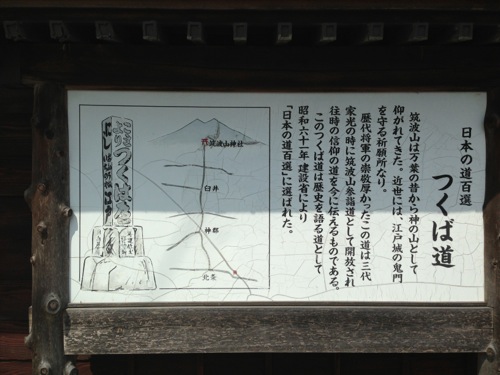 日本の道百選
つくば道
筑波山は万葉の昔から神の山として
仰がれてきた。近世には、江戸城の鬼門
を守る祈願所なり。
歴代将軍の崇敬厚かったこの道は三代
家光の時に筑波山参詣道として開放され
往時の信仰の道を今に伝えるものである。
このつくば道は歴史を語る道として
昭和六十一年建設省により
「日本の道百選」に選ばれた。
筑波山神社
臼井
神郡
北条
つくば道